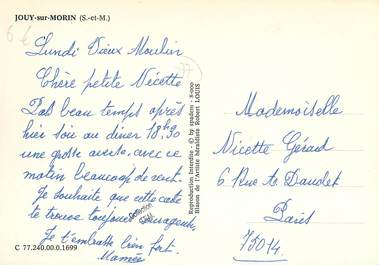 JOUY-sur-MORIN (S.-et-M.)
6 €
77
Lundi Vieux Moulin
Chère petite Nicette
Pas beau temps après
hier soir au diner 18h30
une grosse averse, avec ce
matin beaucoup de vent.
Je souhaite que cette carte
te trouve toujours courageuse,
Je t'embrasse bien fort.
Mamie
C 77.240.00.0.1699
Collection
Reproduction Interdite - © by spadem - 8-000
Blason de l'Artiste héraldiste Robert LOUIS
Mademoiselle
Nicette Gérard
6 Rue te Daudet
Paris
75014.